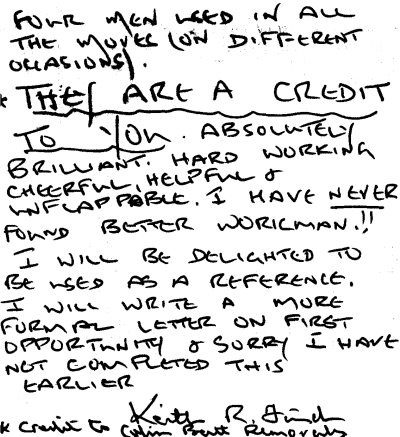 FOUR MEN USED IN ALL
THE MOVES (ON DIFFERENT
OCCASIONS).
* THEY ARE A CREDIT
TO YOU. ABSOLUTELY
BRILLIANT. HARD WORKING
CHEERFUL, HELPFUL &
UNFLAPPABLE. I HAVE NEVER
FOUND BETTER WORKMAN.!!
I WILL BE DELIGHTED TO
BE USED AS A REFERENCE.
I WILL WRITE A MORE
FORMAL LETTER ON FIRST
OPPORTUNITY & SORRY I HAVE
NOT COMPLETED THIS
EARLIER
Keith R.
* Credit to Colin Removals